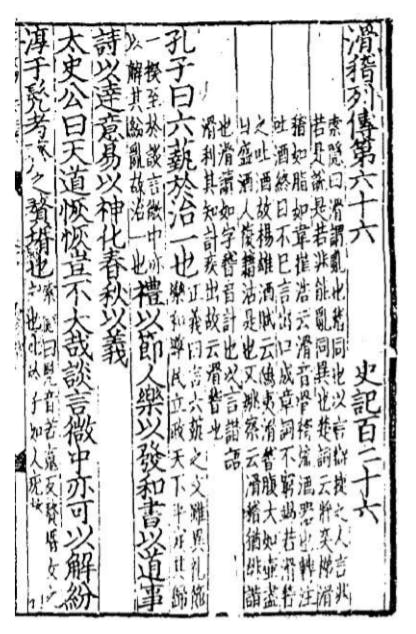 滑稽列傳第六十六　史記百二十六
索隱曰滑謂亂也稽同也以言辯捷之人言非
若是說是若非能亂同異也楚詞云將突梯滑
稽如脂如韋崔浩云滑音骨稽流酒器也轉注
吐酒終日不已言出口成章詞不窮竭若滑稽
之吐酒故楊雄酒賦云鴟夷滑稽腹大如壺盡
日盛酒人復藉沽是也又姚察云滑稽猶俳諧
也滑讀如字稽音計也以言諧語
滑利其知計疾出故云滑稽也
孔子曰六藝於治一也
正義曰言六藝之文雖異礼節
樂和導民立政天下平定其歸
一揆至於談言微中亦
以解其紛亂故治一也
禮以節人樂以發和書以道事
詩以達意易以神化春秋以義
太史公曰天道恢恢豈不大哉談言微中亦可以解紛
淳于髡者齊之贅壻也
索隱曰髡音苦魂反贅壻女之
夫也比於子如人疣贅